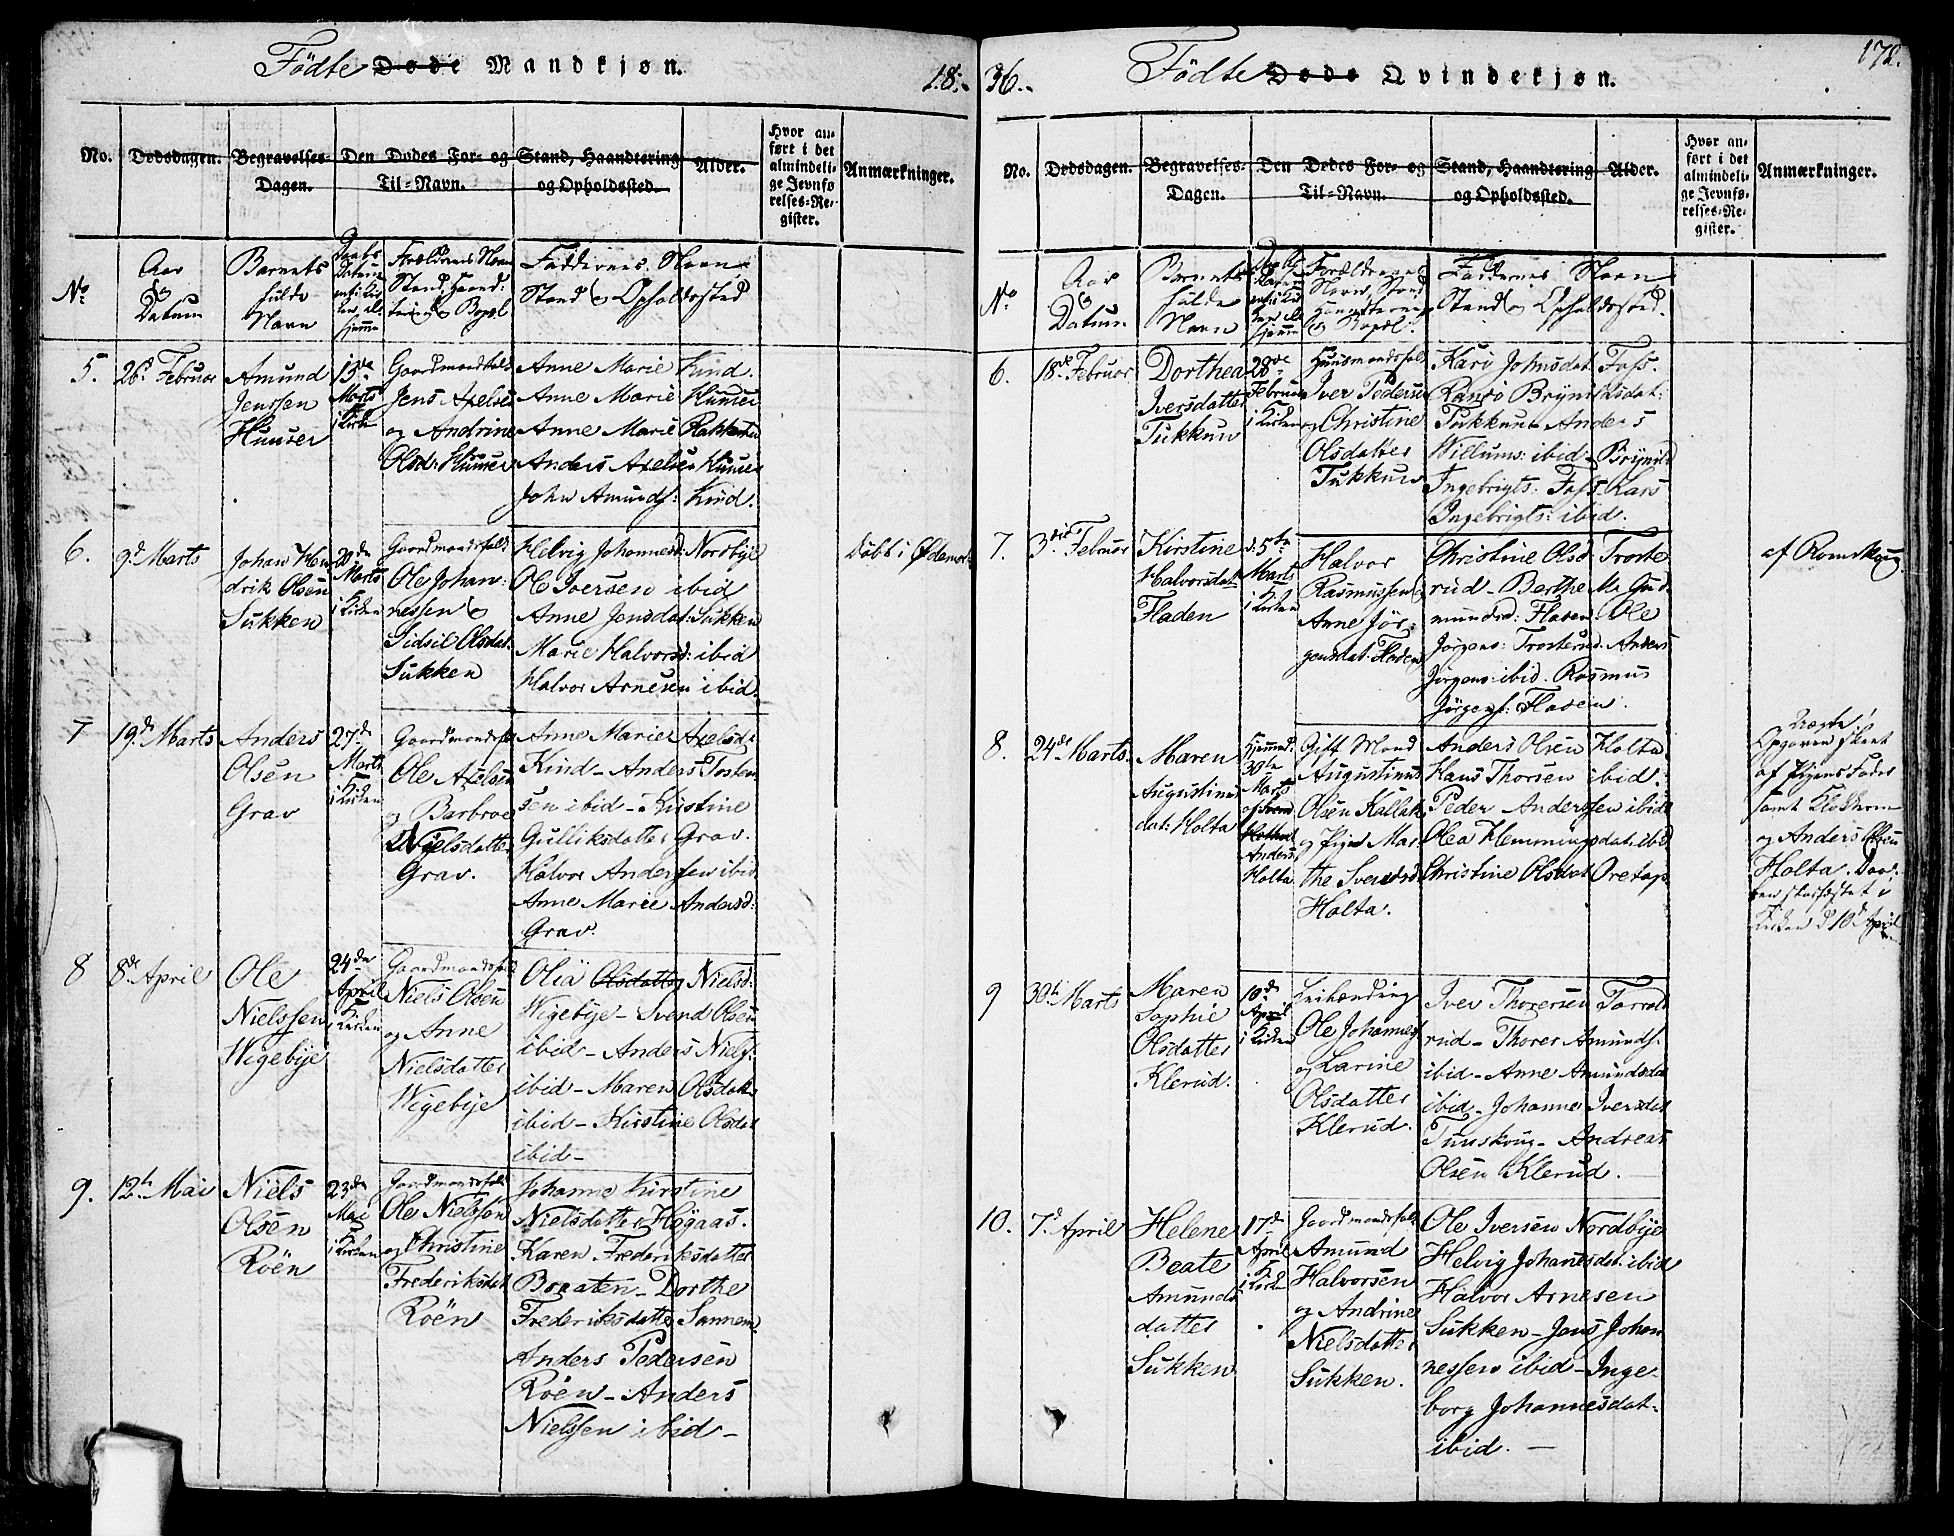 Födte Døde Mandkjøn.
18
No.
Dødsdagen.
Begravelses-
Dagen.
Den Dødes For- og
Til-Navn.
Stand, Haandtering
og Opholdssted.
Alder.
Hvor an-
ført i det
almindeli-
ge Jevnfø
relses-Re-
gister.
Anmærkninger.
No
Aar
&
Datum
Barnets
fulde
Navn
Daabs
Datum
Forældrenes Navn
Stand, Haand:
tering & Bopæl
Faddernes Navn
Stand & Opholdssted
5.
26d Februar
Amund
Jenssen
Huuser
13de
Marts
i Kirken
Gaardmandsfolk
Jens Axelsen
og Andrine
Olsd: Huuser
Anne Marie Kind.
Anne Marie Huuser
Anne Marie Rakkestad
Anders Axelsen Huuser
John Amunds: Kind.
6.
9d Marts
Johan Hen
drik Olsen
Sukken
20de
Marts
i Kirken
Gaardmandsfolk
Ole Johan:
nessen &
Sidsil Olsdat:
Sukken
Helvig Johannesd: Nordbye
Ole Iversen ibid
Anne Jensdat: Sukken
Marie Halvorsd: ibid
Halvor Arnesen ibid.
Døbt i Ødemark
7
19de Marts
Anders
Olsen
Grav
27de
Marts
i Kirken
Gaardmandsfolk
Ole Axelsen
og Barbroe
Nielsdatter
Grav.
Anne Marie Axelsd:
Kind - Anders Torsten
sen ibid - Kirstine
Gulliksdatter Grav.
Halvor Anderssen ibid
Anne Marie Andersd:
Grav.
8
8de April
Ole
Nielssen
Wigebye
24de
April
i Kirken
Gaardmandsfolk
Niels Olsen
og Anne
Nielsdatter
Wigebye
Olia Olsdatter Nielsd:
Wigebye - Svend Olsen
ibid - Anders Niels:
ibid - Maren Olsdatt:
ibid - Kirstine Olsdat
ibid -
9.
12te Mai
Niels
Olsen
Röen
23de
Mai
i Kirken
Gaardmandsfolk
Ole Nielssen
og Christine
Frederiksdat
Röen
Johanne Kirstine
Nielsdatter Høgaas.
Karen Frederiksdatter
Braaten - Dorthe
Frederiksdatter Sannem
Anders Pedersen
Röen - Anders
Nielssen ibid -
36.
Födte Døde Qvindekjøn.
172.
No.
Dødsdagen.
Begravelses-
Dagen.
Den Dødes For- og
Til-Navn.
Stand, Haandtering
og Opholdssted.
Alder.
Hvor an-
ført i det
almindeli-
ge Jevnfø-
relses-Re-
gister.
Anmærkninger.
No
Aar
&
Datum
Barnets
fulde
Navn
Forældrenes
Navn, Stand
Haandtering
& Bopæl.
Faddernes Navn
Stand & Opholdssted.
6.
18de Februar
Dorthea
Iversdatter
Tukkun
28de
Februar
i Kirken
Huusmandsfolk
Iver Pedersen
og Christine
Olsdatter
Tukkun
Kari Johnsdat: Foss.
Ranso Brynildsdat:
Tukkun Anders
Willums: ibid - Brynild
Ingebrigts: Foss - Lars
Ingebrigts: ibid.
7.
3die Februar
Kirstine
Halvorsdat
Fladen
d: 5te
Marts
i Kirken
Halvor
Rasmussen &
Anne Jör-
gensdat: Fladen
Christine Olsd Troste
rud - Berthe M: Gud
mundsd: Flaten. Ole
Jörgens: Trosterud. Anders
Jörgens: ibid. Rasmus
Jörgens: Flaten.
af Romskoug
8.
24de Marts.
Maren
Augustinus
dat: Holta
Hjemmed:
30te
Marts
af
Anders
Holta
Gift Mand
Augustinus
Olsen Kallak
og Pige Mar-
the Svendsd
Holta.
Anders Olsen Holta
Hans Thorsen ibid.
Peder Anderssen ibid
Olea Flemmingsdat: ibid
Christine Olsdat Oretorp
Uægte!
Opgaven skeet
af Pigens Fader
samt Klokkeren
og Anders Olsen
Holta. Daa-
ben stadfæstet i
Kirken d 10d April
9
30te Marts
Maren
Sophie
Olsdatter
Klerud.
10de
April
i Kirken
Leilænding
Ole Johannes
og Larine
Olsdatter
Klerud.
Iver Thorersen Torrolt
rud - Thorer Amunds:
ibid - Anne Amundsdat
ibid - Johanne Iversdat
Tunskoug - Andreas
Olsen Klerud.
10.
7d April
Helene
Beate
Amunds
datter
Sukken
17de
April
i Kirken
Gaardmandsfolk
Amund
Halvorsen
og Andrine
Nielsdatter
Sukken.
Ole Iversen Nordbye
Helvig Johannesdat: ibid
Halvor Arnesen
Sukken - Jens Johan
nessen ibid - Inge-
borg Johannesdat-
ibid. -